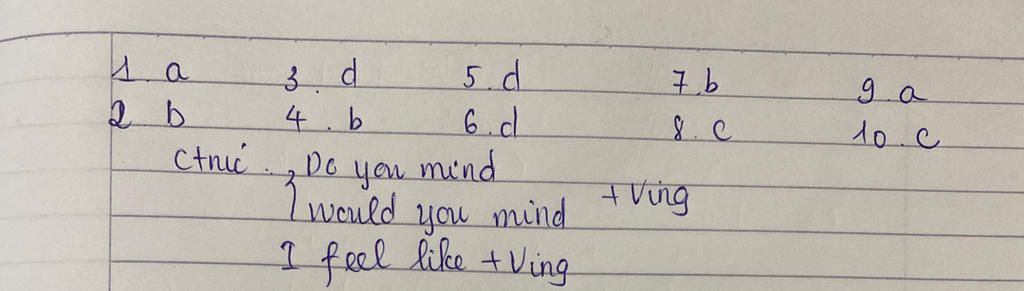 1. a 3. d 5. d 7. b 9. a
2 b 4. b 6. d 8. c 10. c
Ctrúc: Do you mind
would you mind + Ving
I feel like + Ving